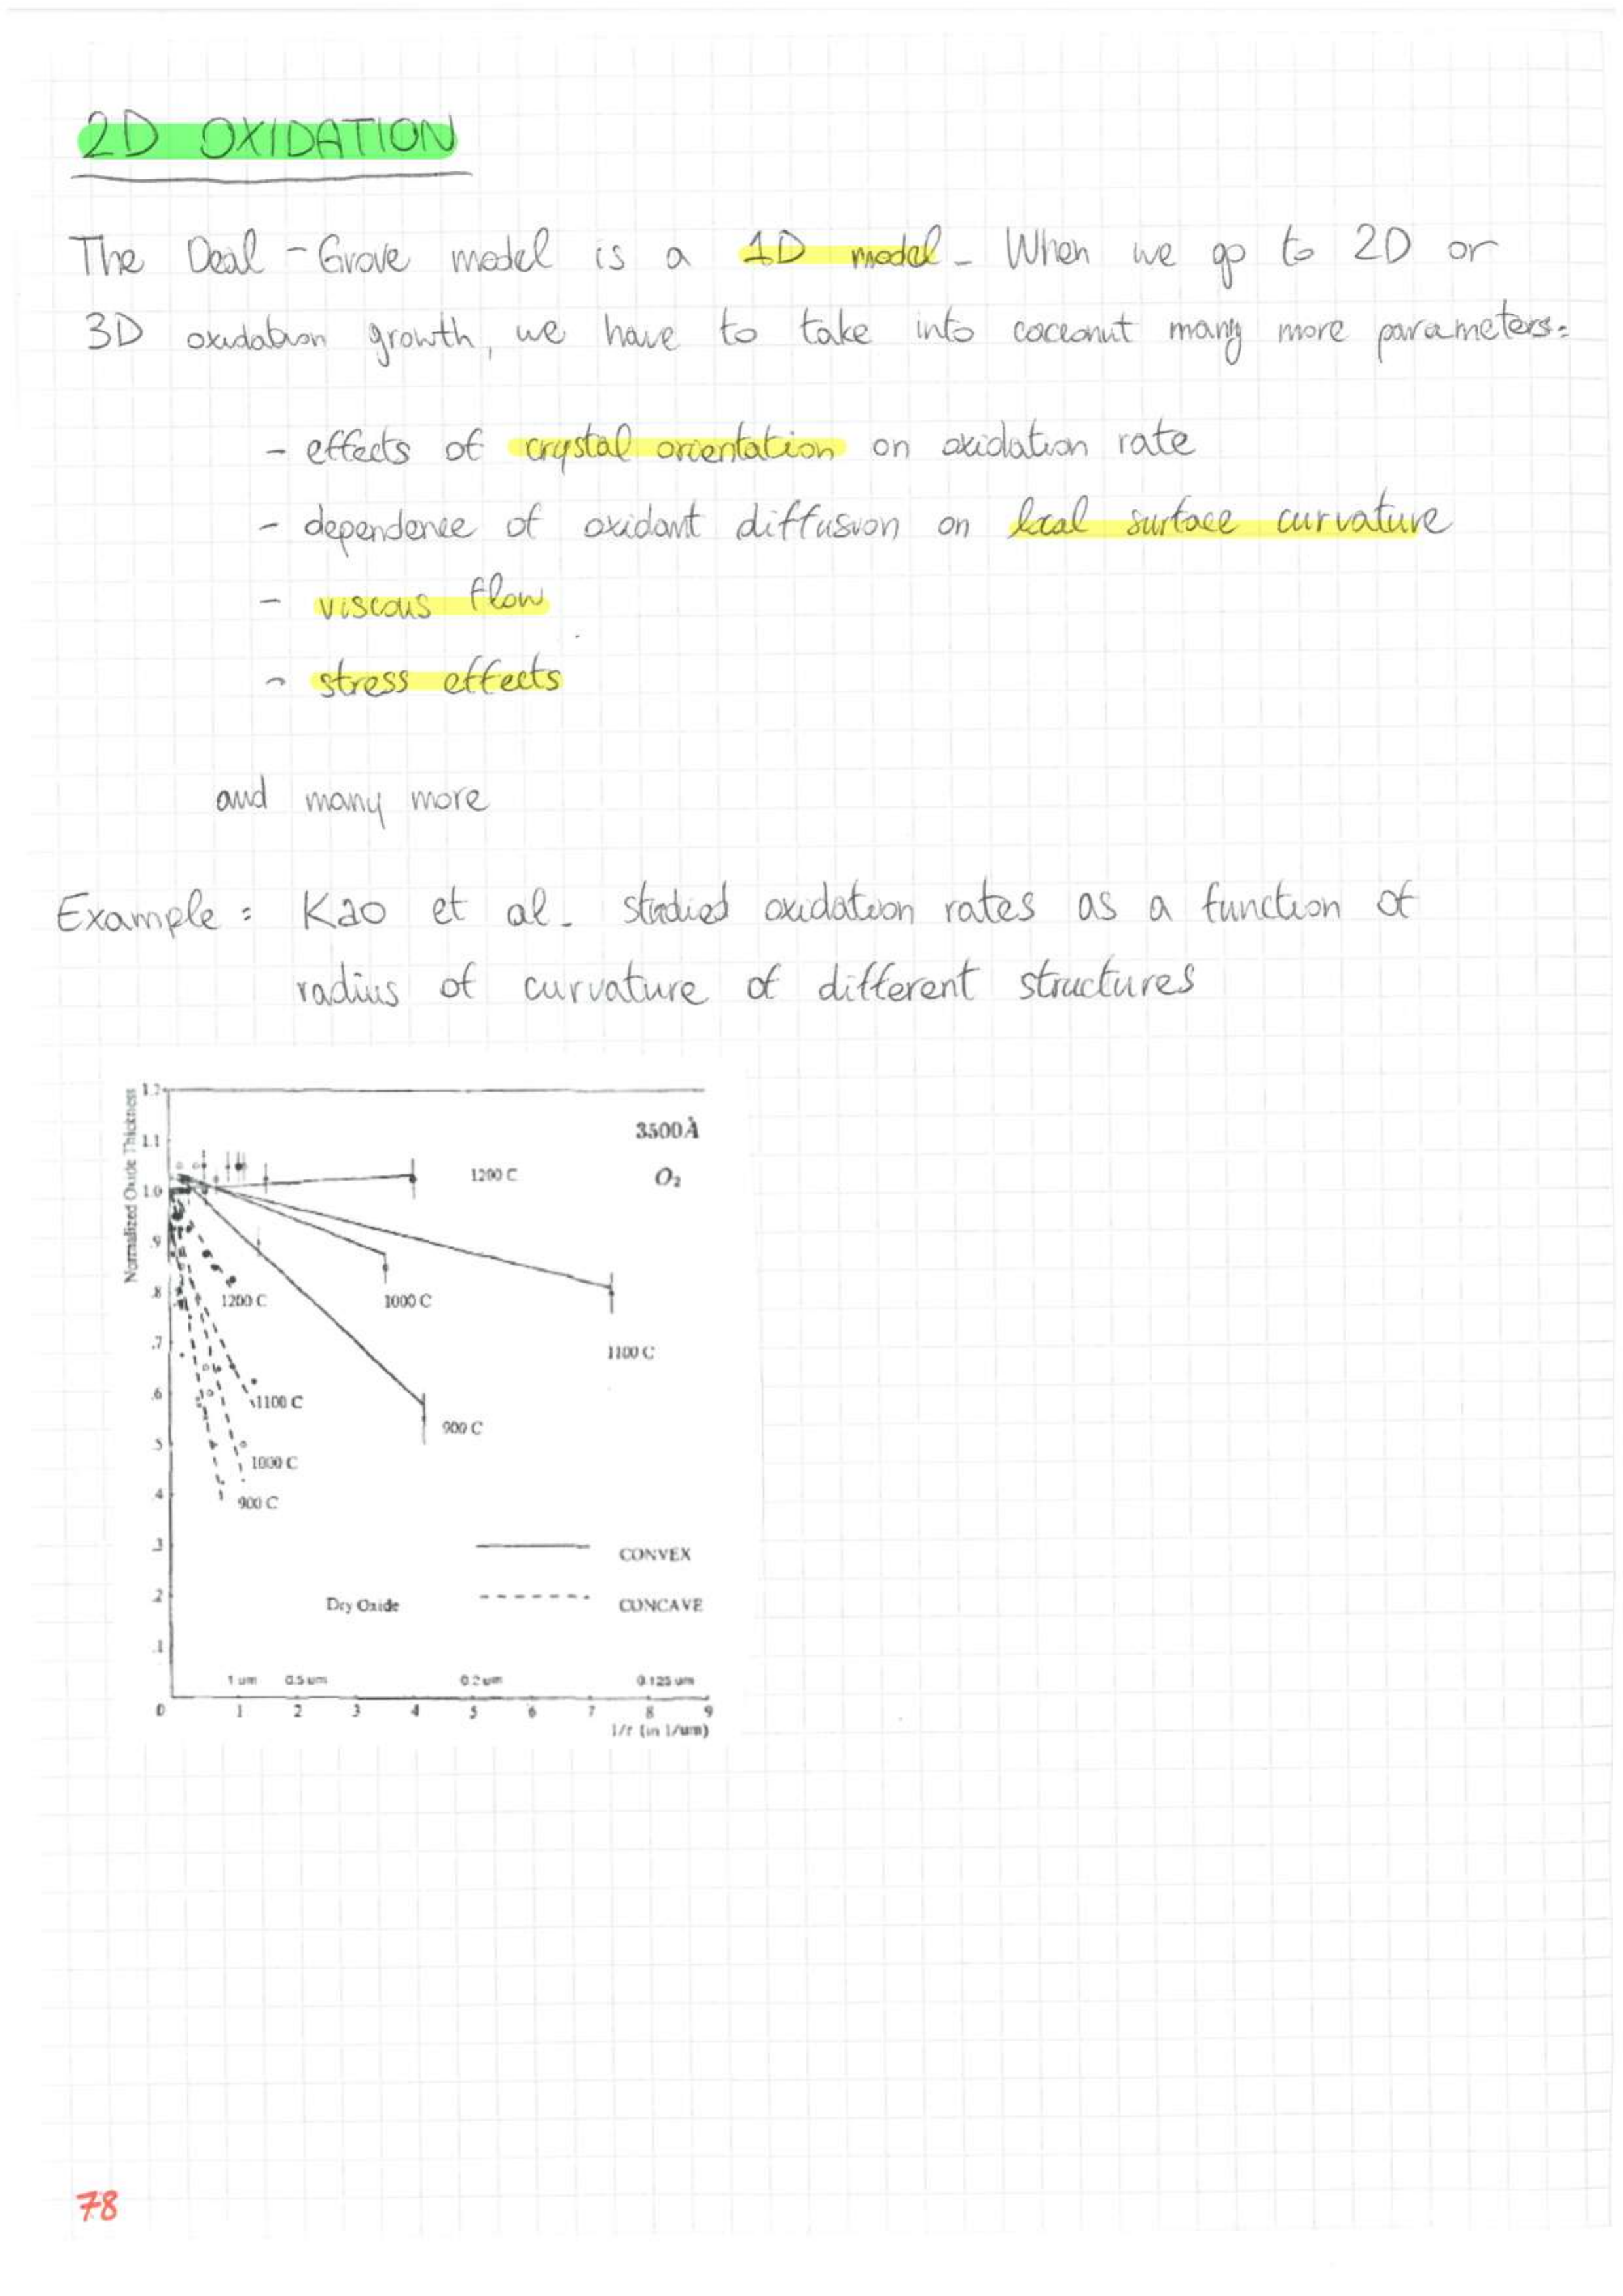 2D OXIDATION
The Deal-Grove model is a 1D model. When we go to 2D or
3D oxidation growth, we have to take into coccount many more parameters:
- effects of crystal orientation on oxidation rate
- dependence of oxidant diffusion on local surface curvature
- viscous flow
- stress effects
and many more
Example: Kao et al. studied oxidation rates as a function of
radius of curvature of different structures
Normalized Oxide Thickness
1.2
1.1
1.0
.9
.8
.7
.6
.5
.4
.3
.2
.1
0
3500Å
O₂
1200 C
1200 C
1000 C
1100 C
1100 C
900 C
1000 C
900 C
CONVEX
CONCAVE
Dry Oxide
1 um 0.5 um 0.2 um 0.125 um
1 2 3 4 5 6 7 8 9
1/r (in 1/um)
78